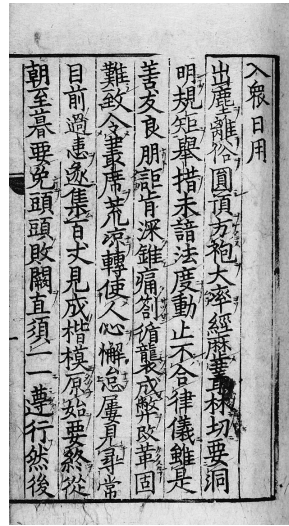 入衆日用
出塵離俗圓頂方袍大率經歷叢林切要洞
明規矩舉措未諳法度動止不合律儀雖是
善友良朋詎肯深錐痛劄循襲成弊改革固
難致令叢席荒凉轉使人心懈怠屢見尋常
目前過患遂集百丈見成楷模原始要終從
朝至暮要免頭頭敗闕直須一一遵行然後